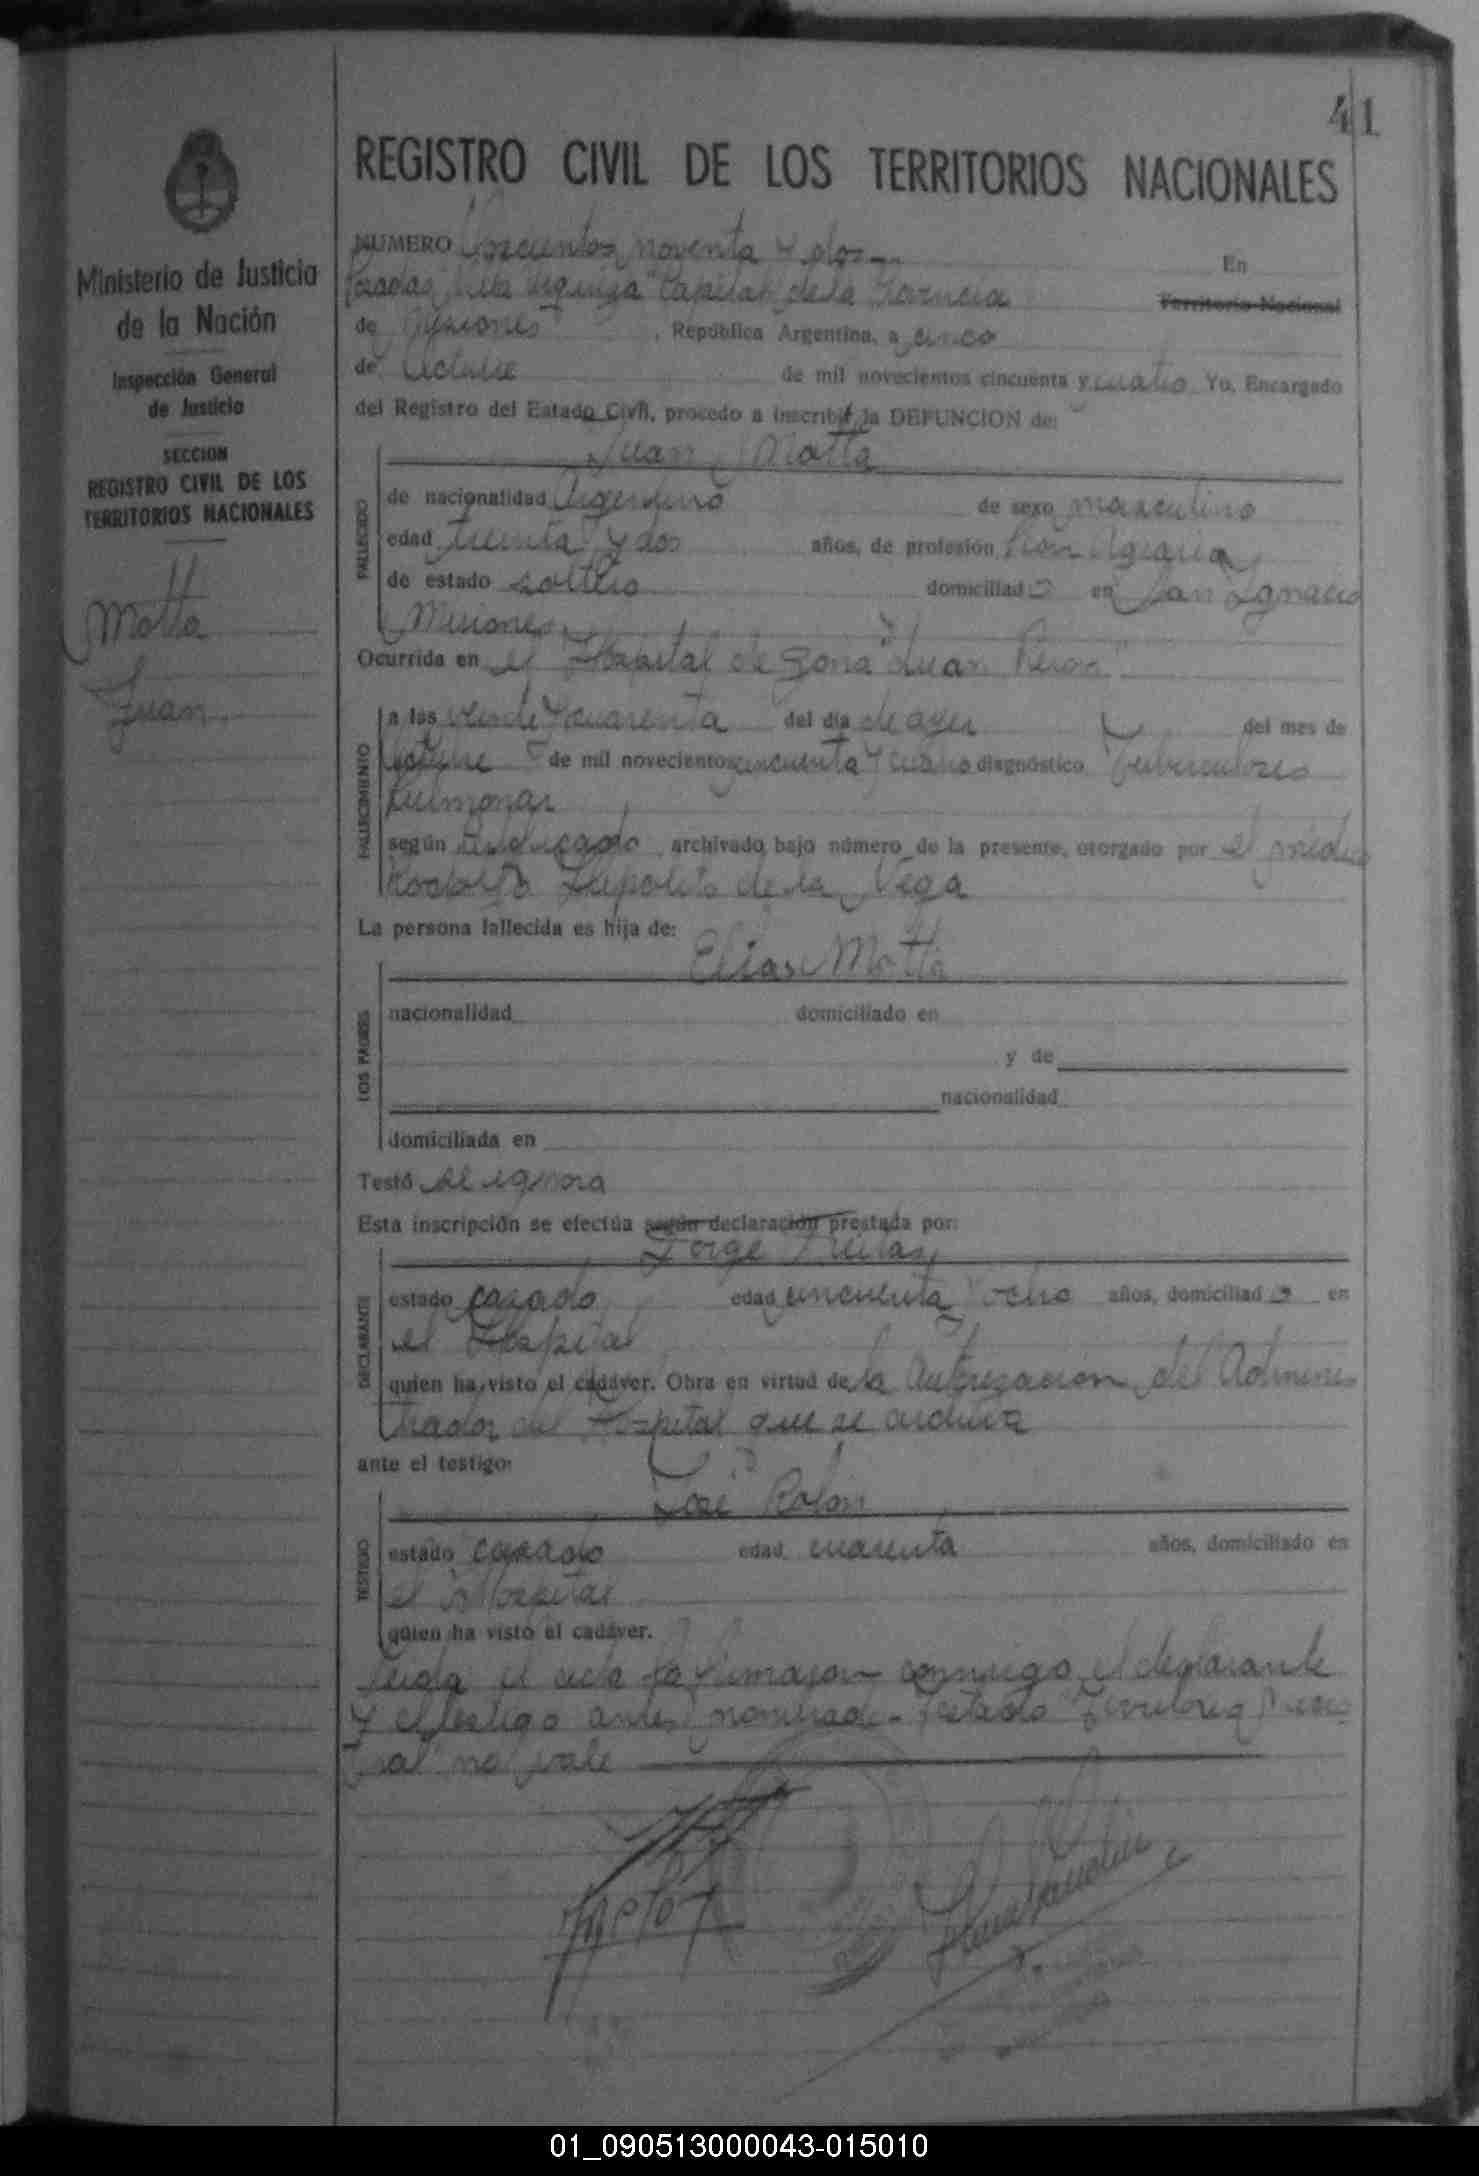 41
REGISTRO CIVIL DE LOS TERRITORIOS NACIONALES
Ministerio de Justicia
de la Nación
Inspección General
de Justicia
SECCION
REGISTRO CIVIL DE LOS
TERRITORIOS NACIONALES
Motta
Juan
NUMERO noventa y dos En
Posadas Capital de la Provincia Territorio Nacional
de Misiones, República Argentina, a cinco
de Octubre de mil novecientos cincuenta y cuatro Yo, Encargado
del Registro del Estado Civil, procedo a inscribir la DEFUNCION de:
Juan Motta
FALLECIDO
de nacionalidad Argentino de sexo masculino
edad treinta y dos años, de profesión Peon Agrario
de estado soltero domiciliado en San Ignacio
Misiones
Ocurrida en el Hospital de Zona "Juan Peron"
FALLECIMIENTO
a las y cuarenta del día de ayer del mes de
octubre de mil novecientos cincuenta y cuatro diagnóstico Tuberculosis
Pulmonar
según certificado archivado bajo número de la presente, otorgado por el médico
Rodolfo Hipolito de la Vega
La persona fallecida es hija de:
Elias Motta
LOS PADRES
nacionalidad domiciliado en
y de
nacionalidad
domiciliada en
Testó se ignora
Esta inscripción se efectúa según declaración prestada por:
Jorge Freitas
DECLARANTE
estado casado edad cincuenta y ocho años, domiciliado en
el Hospital
quien ha visto el cadáver. Obra en virtud de la autorizacion del Adminis
trador del Hospital que se archiva
ante el testigo:
José Rolon
TESTIGO
estado casado edad cuarenta años, domiciliado en
el Hospital
quien ha visto el cadáver.
Leida el acta la firmaron conmigo el declarante
y el testigo antes nombrado - Testado "Territorio Nacio
nal" no vale
01_090513000043-015010